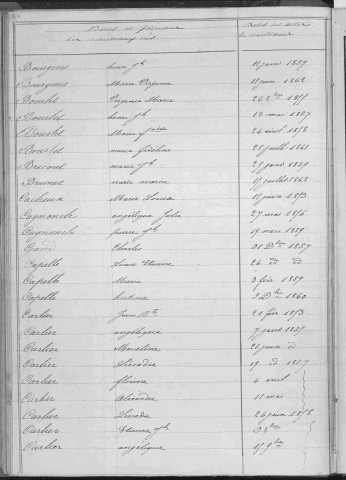 Noms et prénoms
des nouveaux nés
Date des actes
de naissance
Bourgeois Louis Jh 11 janv 1859
Bourgeois Maria Virginie 11 janv 1862
Bourlet Virginie Maria 26 8bre 1855
Bourlet Louis Jh 13 mai 1857
Bourlet Marie 26 avril 1858
Bourlet Marie Adeline 25 juillet 1861
Bricout Marie Jh 1859
Brunet Marie 15 juillet 1862
Cacheux Marie Louisa 18 janv 1853
Cagnoncle angélique Julie 27 mai 1856
Cagnoncle pierre Jh 19 mars 1859
Charles 31 Dbre 1857
Capelle Louis Etienne 26 d d
Capelle Maria 3 fév 1859
Capelle Antoine 3 Dbre 1860
Carlier Jean Bte 20 fév 1853
Carlier angélique 7 janv 1855
Carlier 21 juin d
Carlier Léocadie 19 d 1857
Carlier florine 4 avril
Carlier Alexandre 11 mai
Carlier 26 juin 1858
Carlier Etienne Jh 9 8bre
Carlier angélique 15 9bre